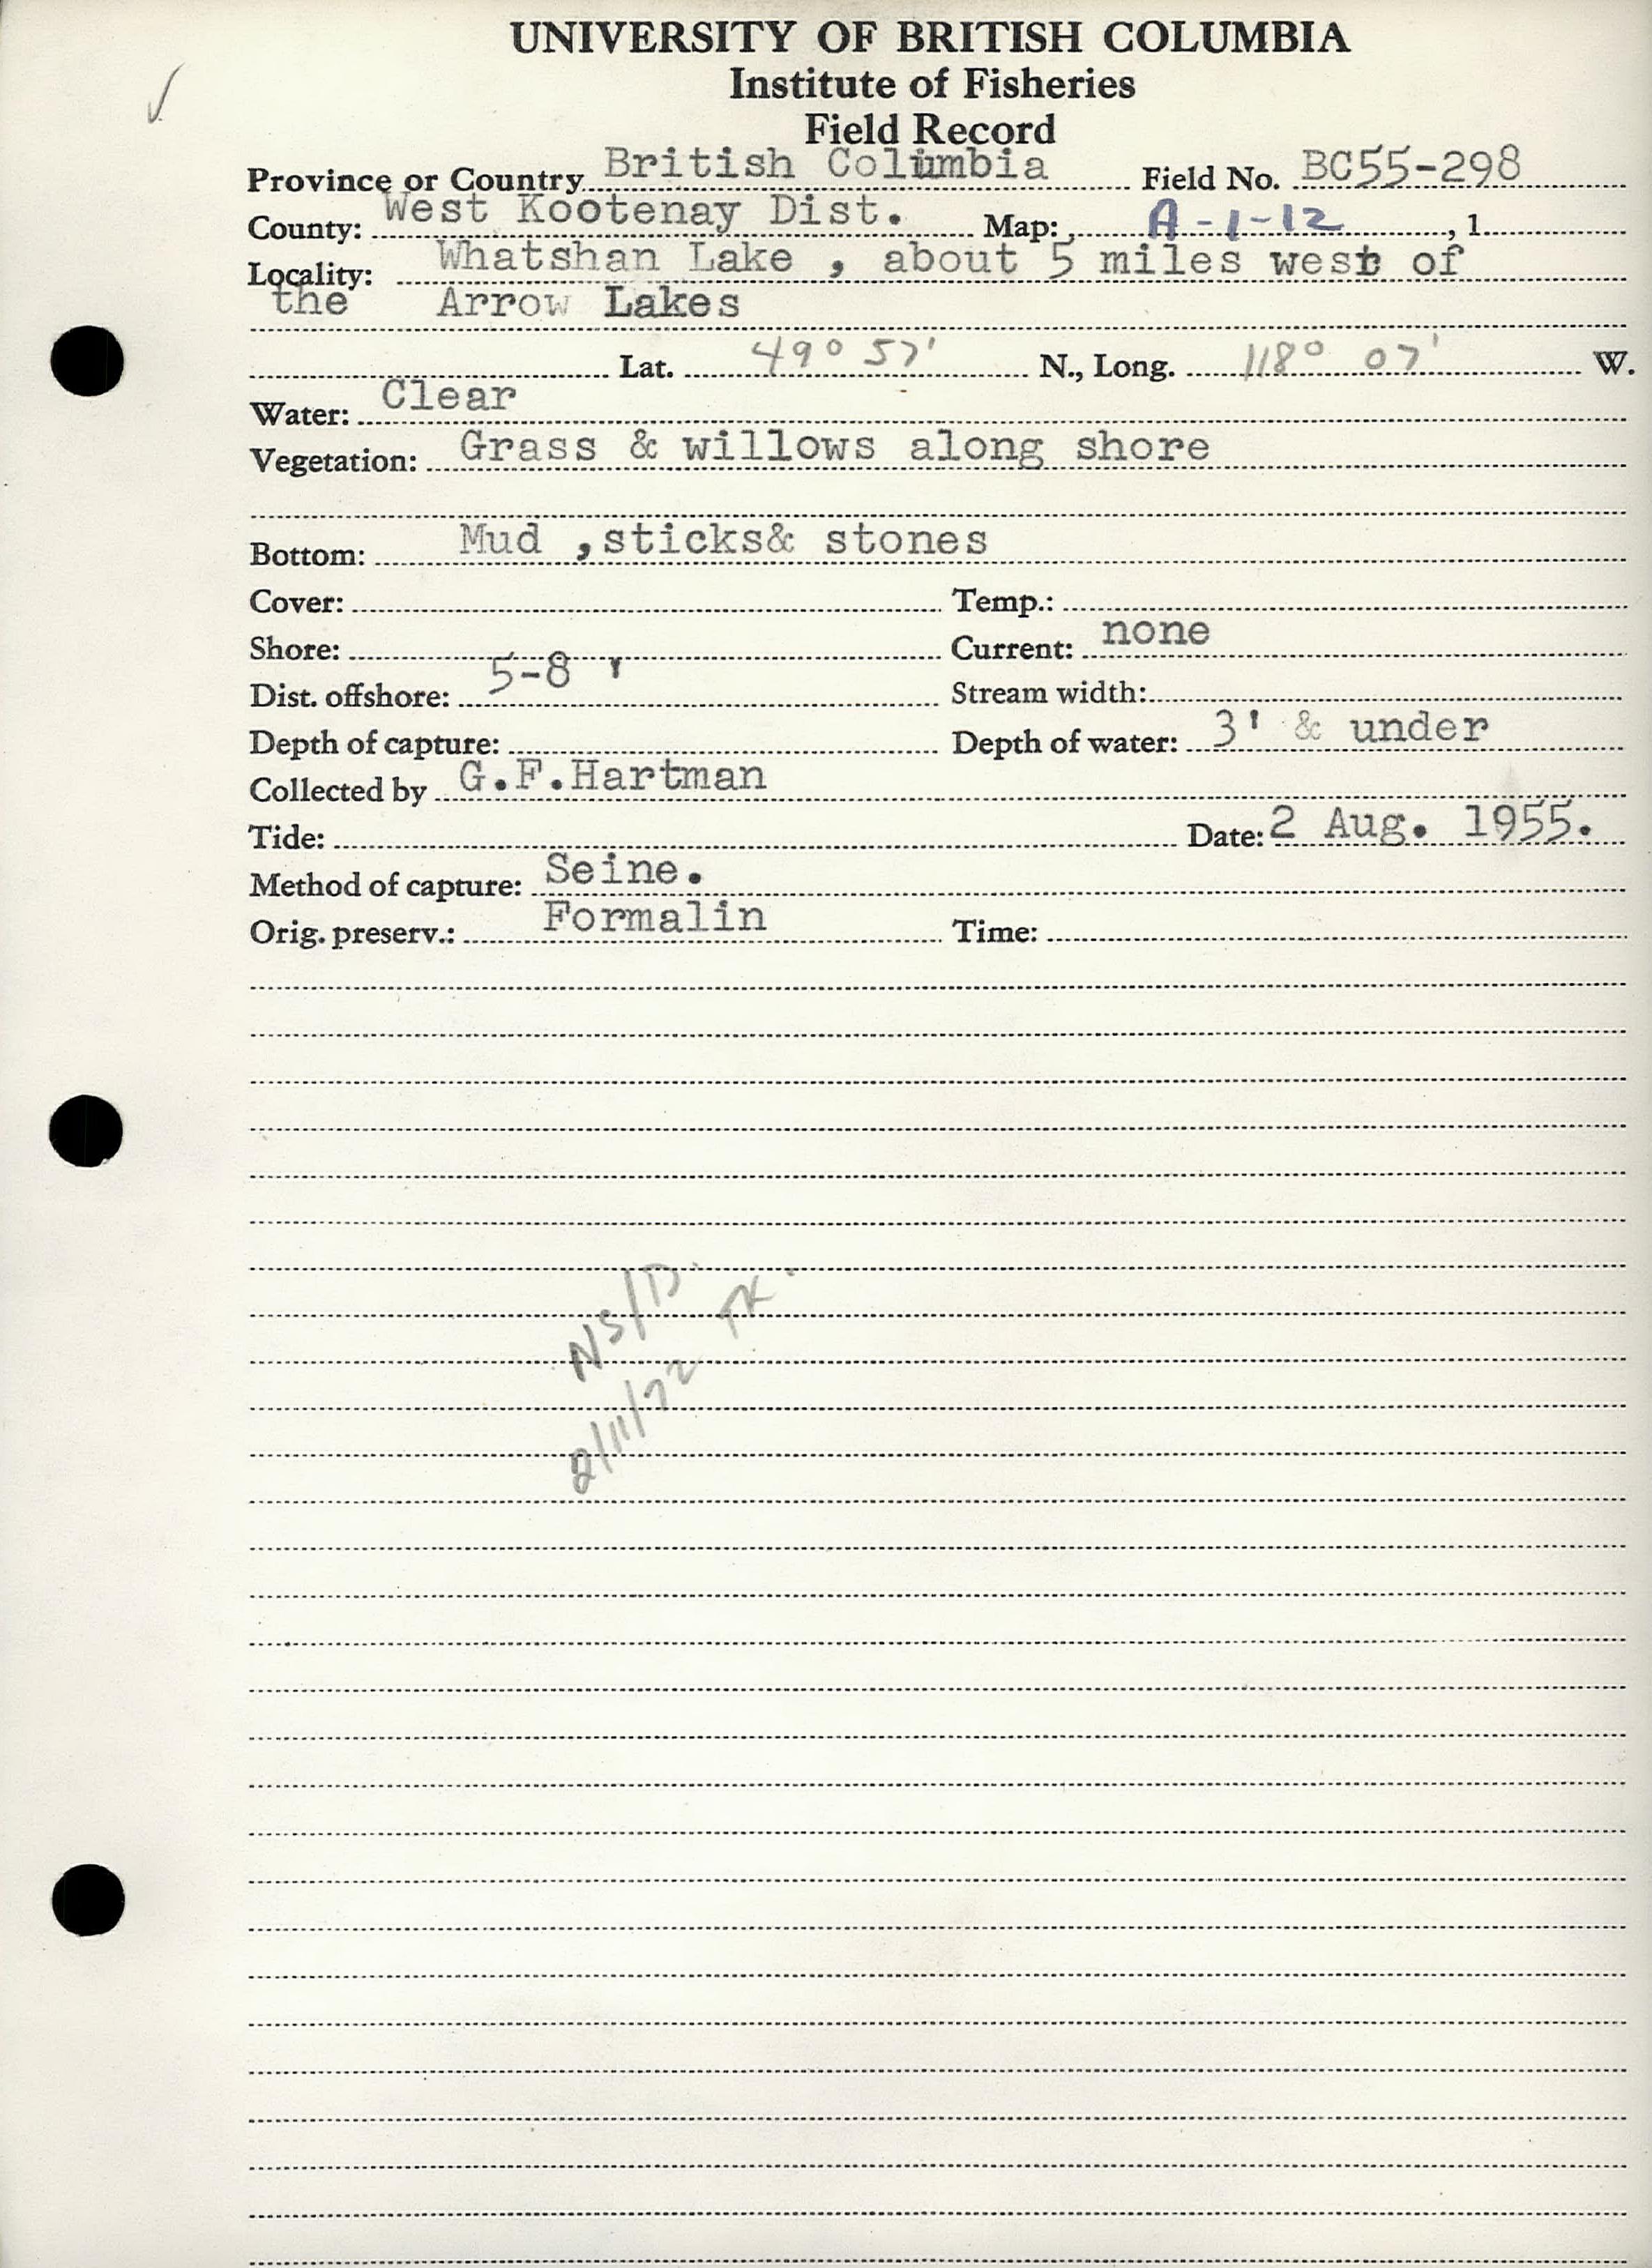 UNIVERSITY OF BRITISH COLUMBIA
Institute of Fisheries
Field Record
Province or Country British Columbia Field No. BC55-298
County: West Kootenay Dist. Map: A-1-12, 1.
Locality: Whatshan Lake , about 5 miles west of
the Arrow Lakes
Lat. 49° 57' N., Long. 118° 07' W.
Water: Clear
Vegetation: Grass & willows along shore
Bottom: Mud ,sticks& stones
Cover: Temp.:
Shore: Current: none
Dist. offshore: 5-8 ' Stream width:
Depth of capture: Depth of water: 3' & under
Collected by G.F.Hartman
Tide: Date: 2 Aug. 1955.
Method of capture: Seine.
Orig. preserv.: Formalin Time:
NS/D.
2/11/72